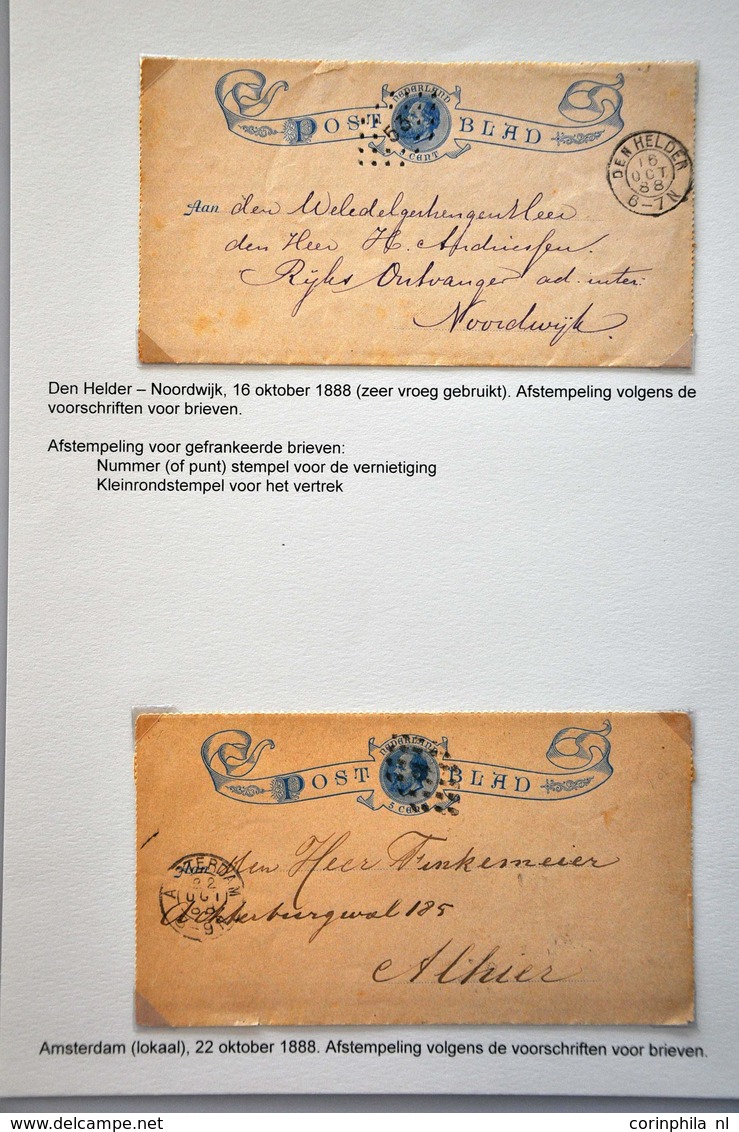 NEDERLAND
POST BLAD
53
5 CENT
DEN HELDER
16
OCT
88
6-7N
Aan den Weledelgestrengen Heer
den Heer H. Andriessen.
Rijks Ontvanger ad. inter:
Noordwijk.
Den Helder – Noordwijk, 16 oktober 1888 (zeer vroeg gebruikt). Afstempeling volgens de
voorschriften voor brieven.
Afstempeling voor gefrankeerde brieven:
Nummer (of punt) stempel voor de vernietiging
Kleinrondstempel voor het vertrek
NEDERLAND
POST BLAD
5 CENT
AMSTERDAM
22
OCT
Aan den Heer Finkemeier
Achterburgwal 185
Alhier
Amsterdam (lokaal), 22 oktober 1888. Afstempeling volgens de voorschriften voor brieven.
corinphila nl